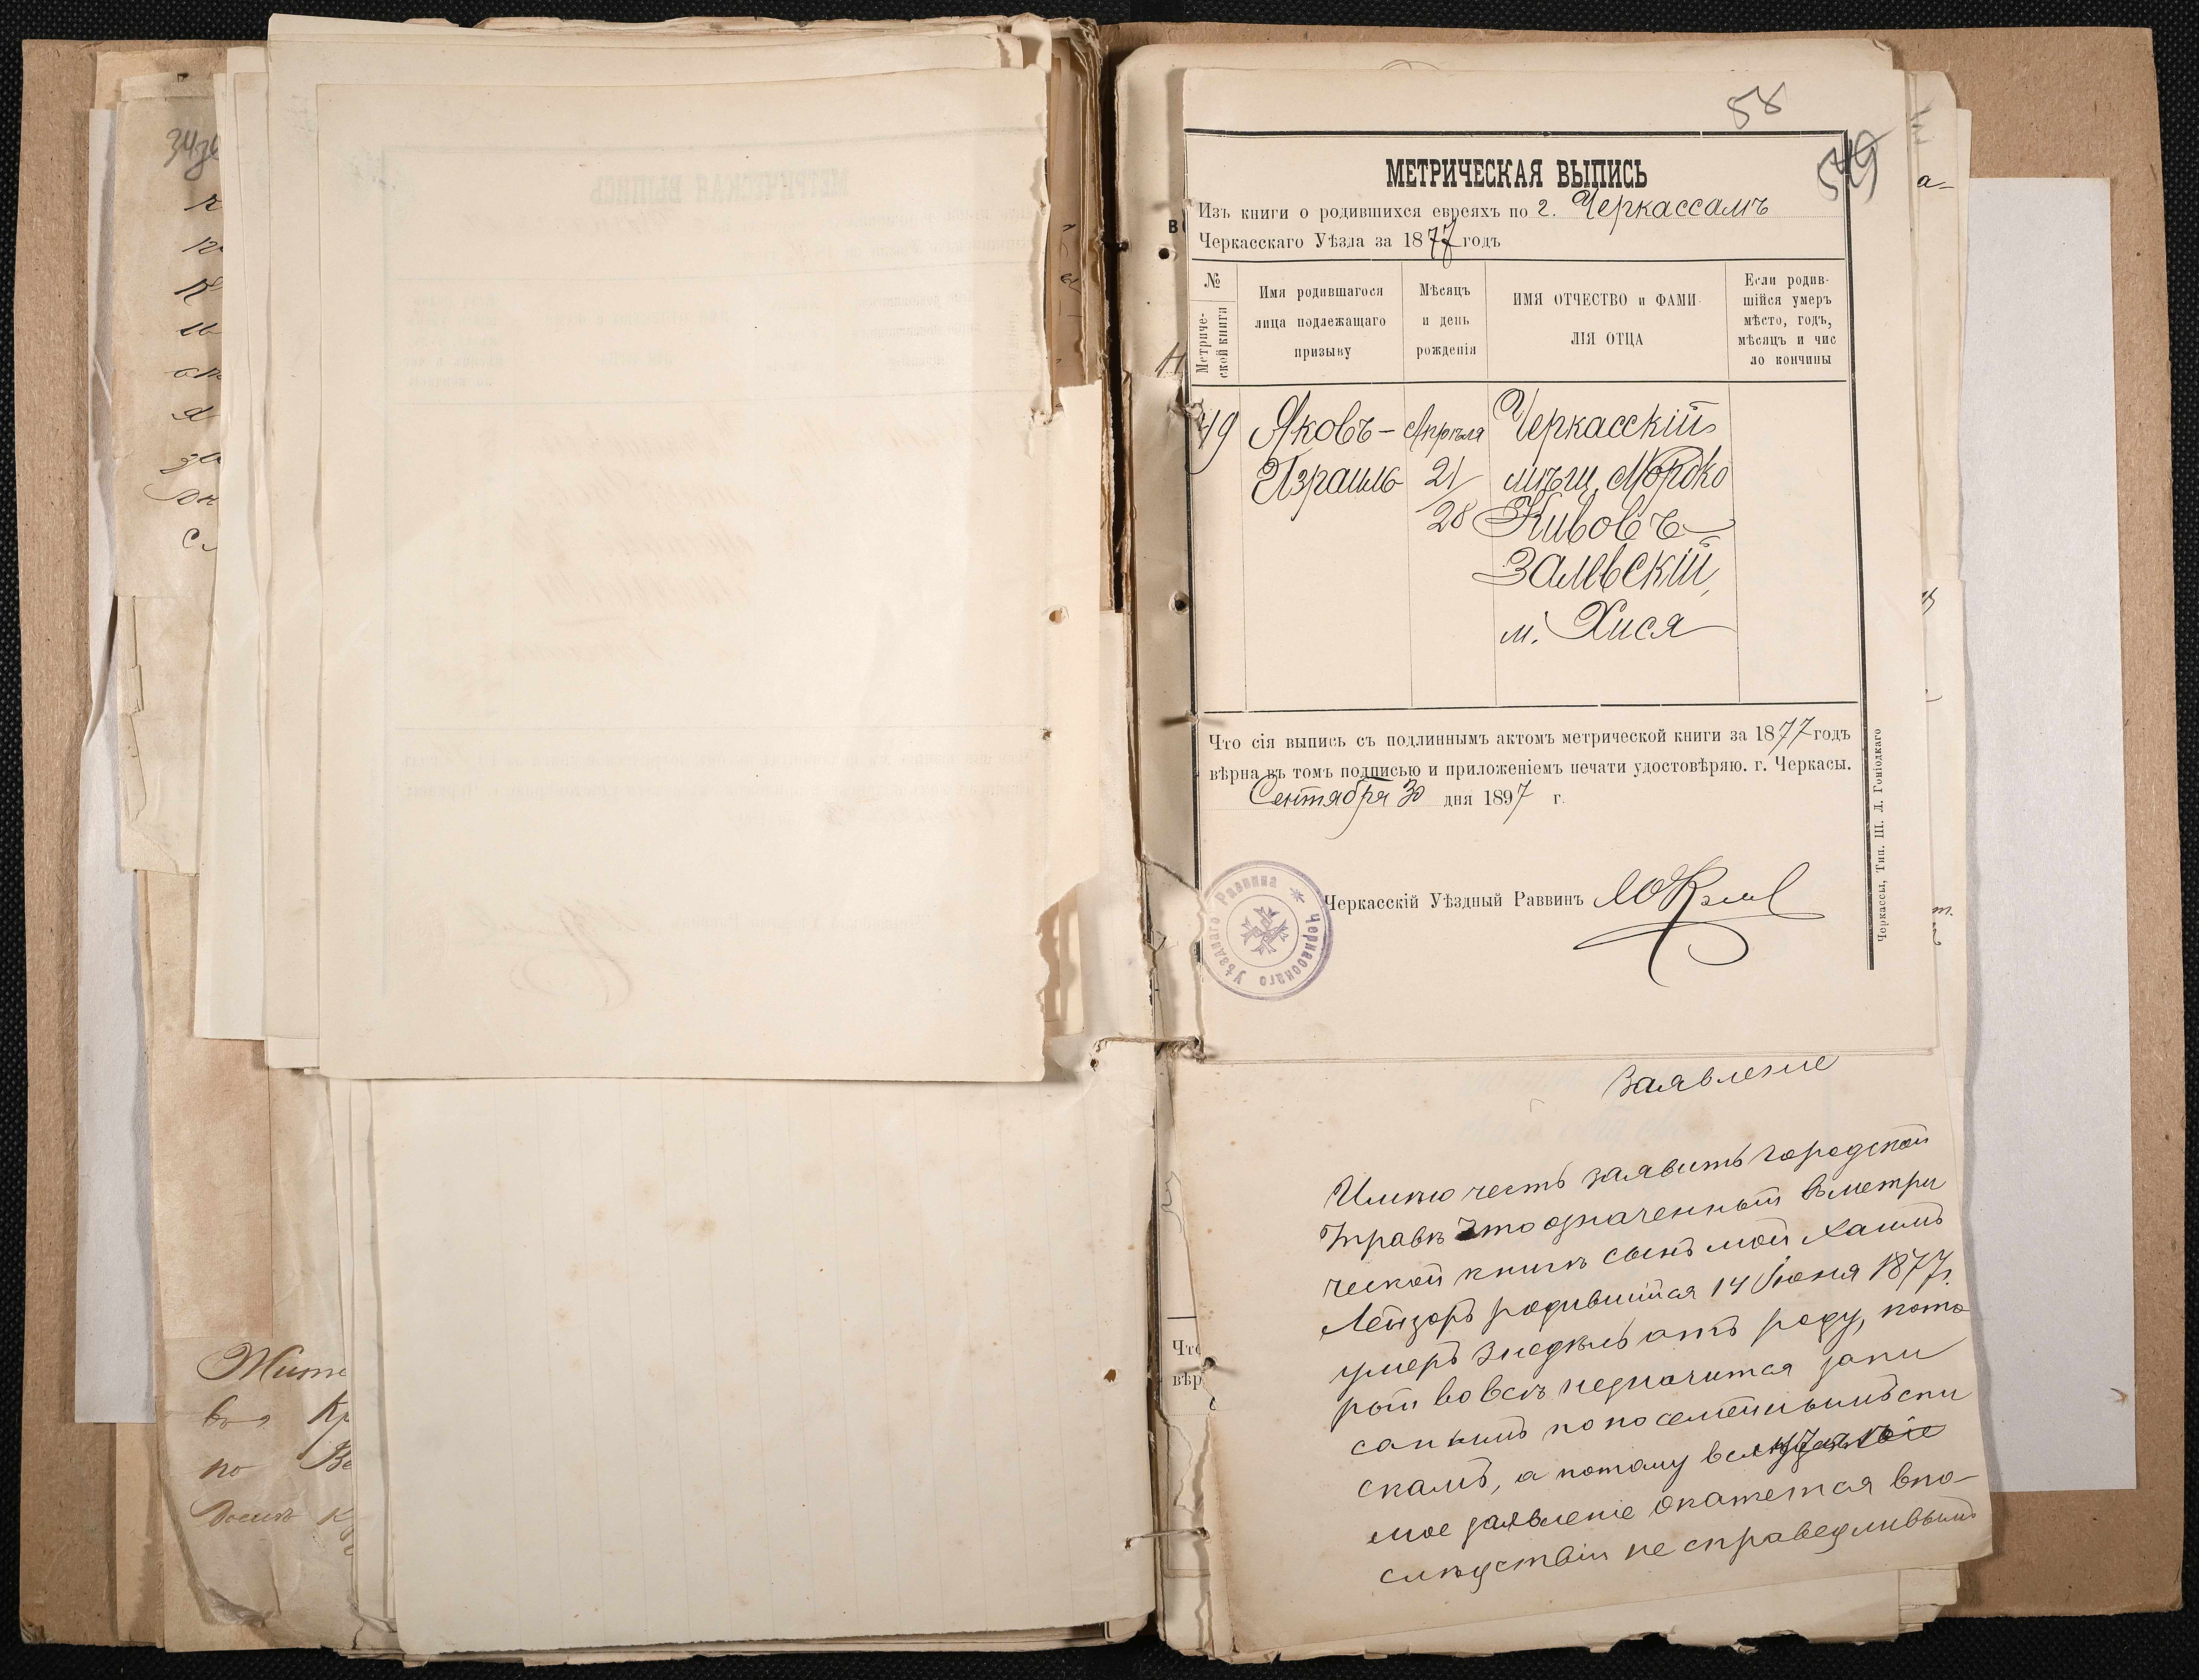 58
59
МЕТРИЧЕСКАЯ ВЫПИСЬ
Изъ книги о родившихся евреяхъ по г. Черкассамъ
Черкасскаго Уѣзда за 1877 годъ
№ Метриче-ской книги
Имя родившагося лица подлежащаго призыву
Мѣсяцъ и день рожденія
ИМЯ ОТЧЕСТВО и ФАМИ-ЛІЯ ОТЦА
Если родив-шійся умеръ мѣсто, годъ, мѣсяцъ и чис ло кончины
49 Яковъ- Апрѣля Черкасскій
Израиль 21 мѣщ. Мордко
28 Кивовъ
Залевскій,
м. Хися
Что сія выпись съ подлиннымъ актомъ метрической книги за 1877 годъ
вѣрна въ томъ подписью и приложеніемъ печати удостовѣряю. г. Черкасы.
Сентября 30 дня 1897 г.
Черкасскій Уѣздный Раввинъ
Черкасскаго Уѣзднаго Раввина
Черкассы, Тип. Ш. Л. Гоніодкаго
Заявление
Имѣю честь заявить городской
Управѣ что означенный въ метри
ческой книгѣ сынъ мой Хаимъ
Лейзоръ родившійся 14 Іюня 1877 г.
умеръ недѣль отъ роду, кото
рый вовсѣ незначится запи
саннымъ по посемейнымъ спи
скамъ, а потому
мое заявление окажется впо-
слѣдствіи не справедливымъ
Что
вѣр
34
Жит
въ Кр
по Ве